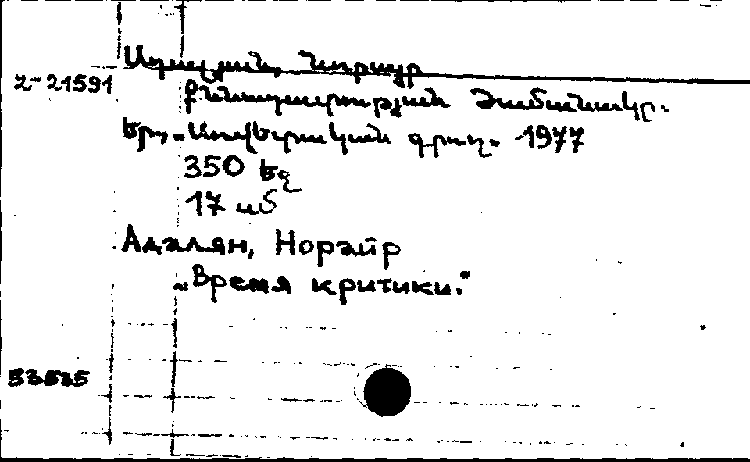 Ադալյան, Նորայր
2-21591
Քննադատության ժամանակը.
Եր., „Սովետական գրող„ 1977
350 եջ
17 սմ
Адалян, Норайр
„Время критики."